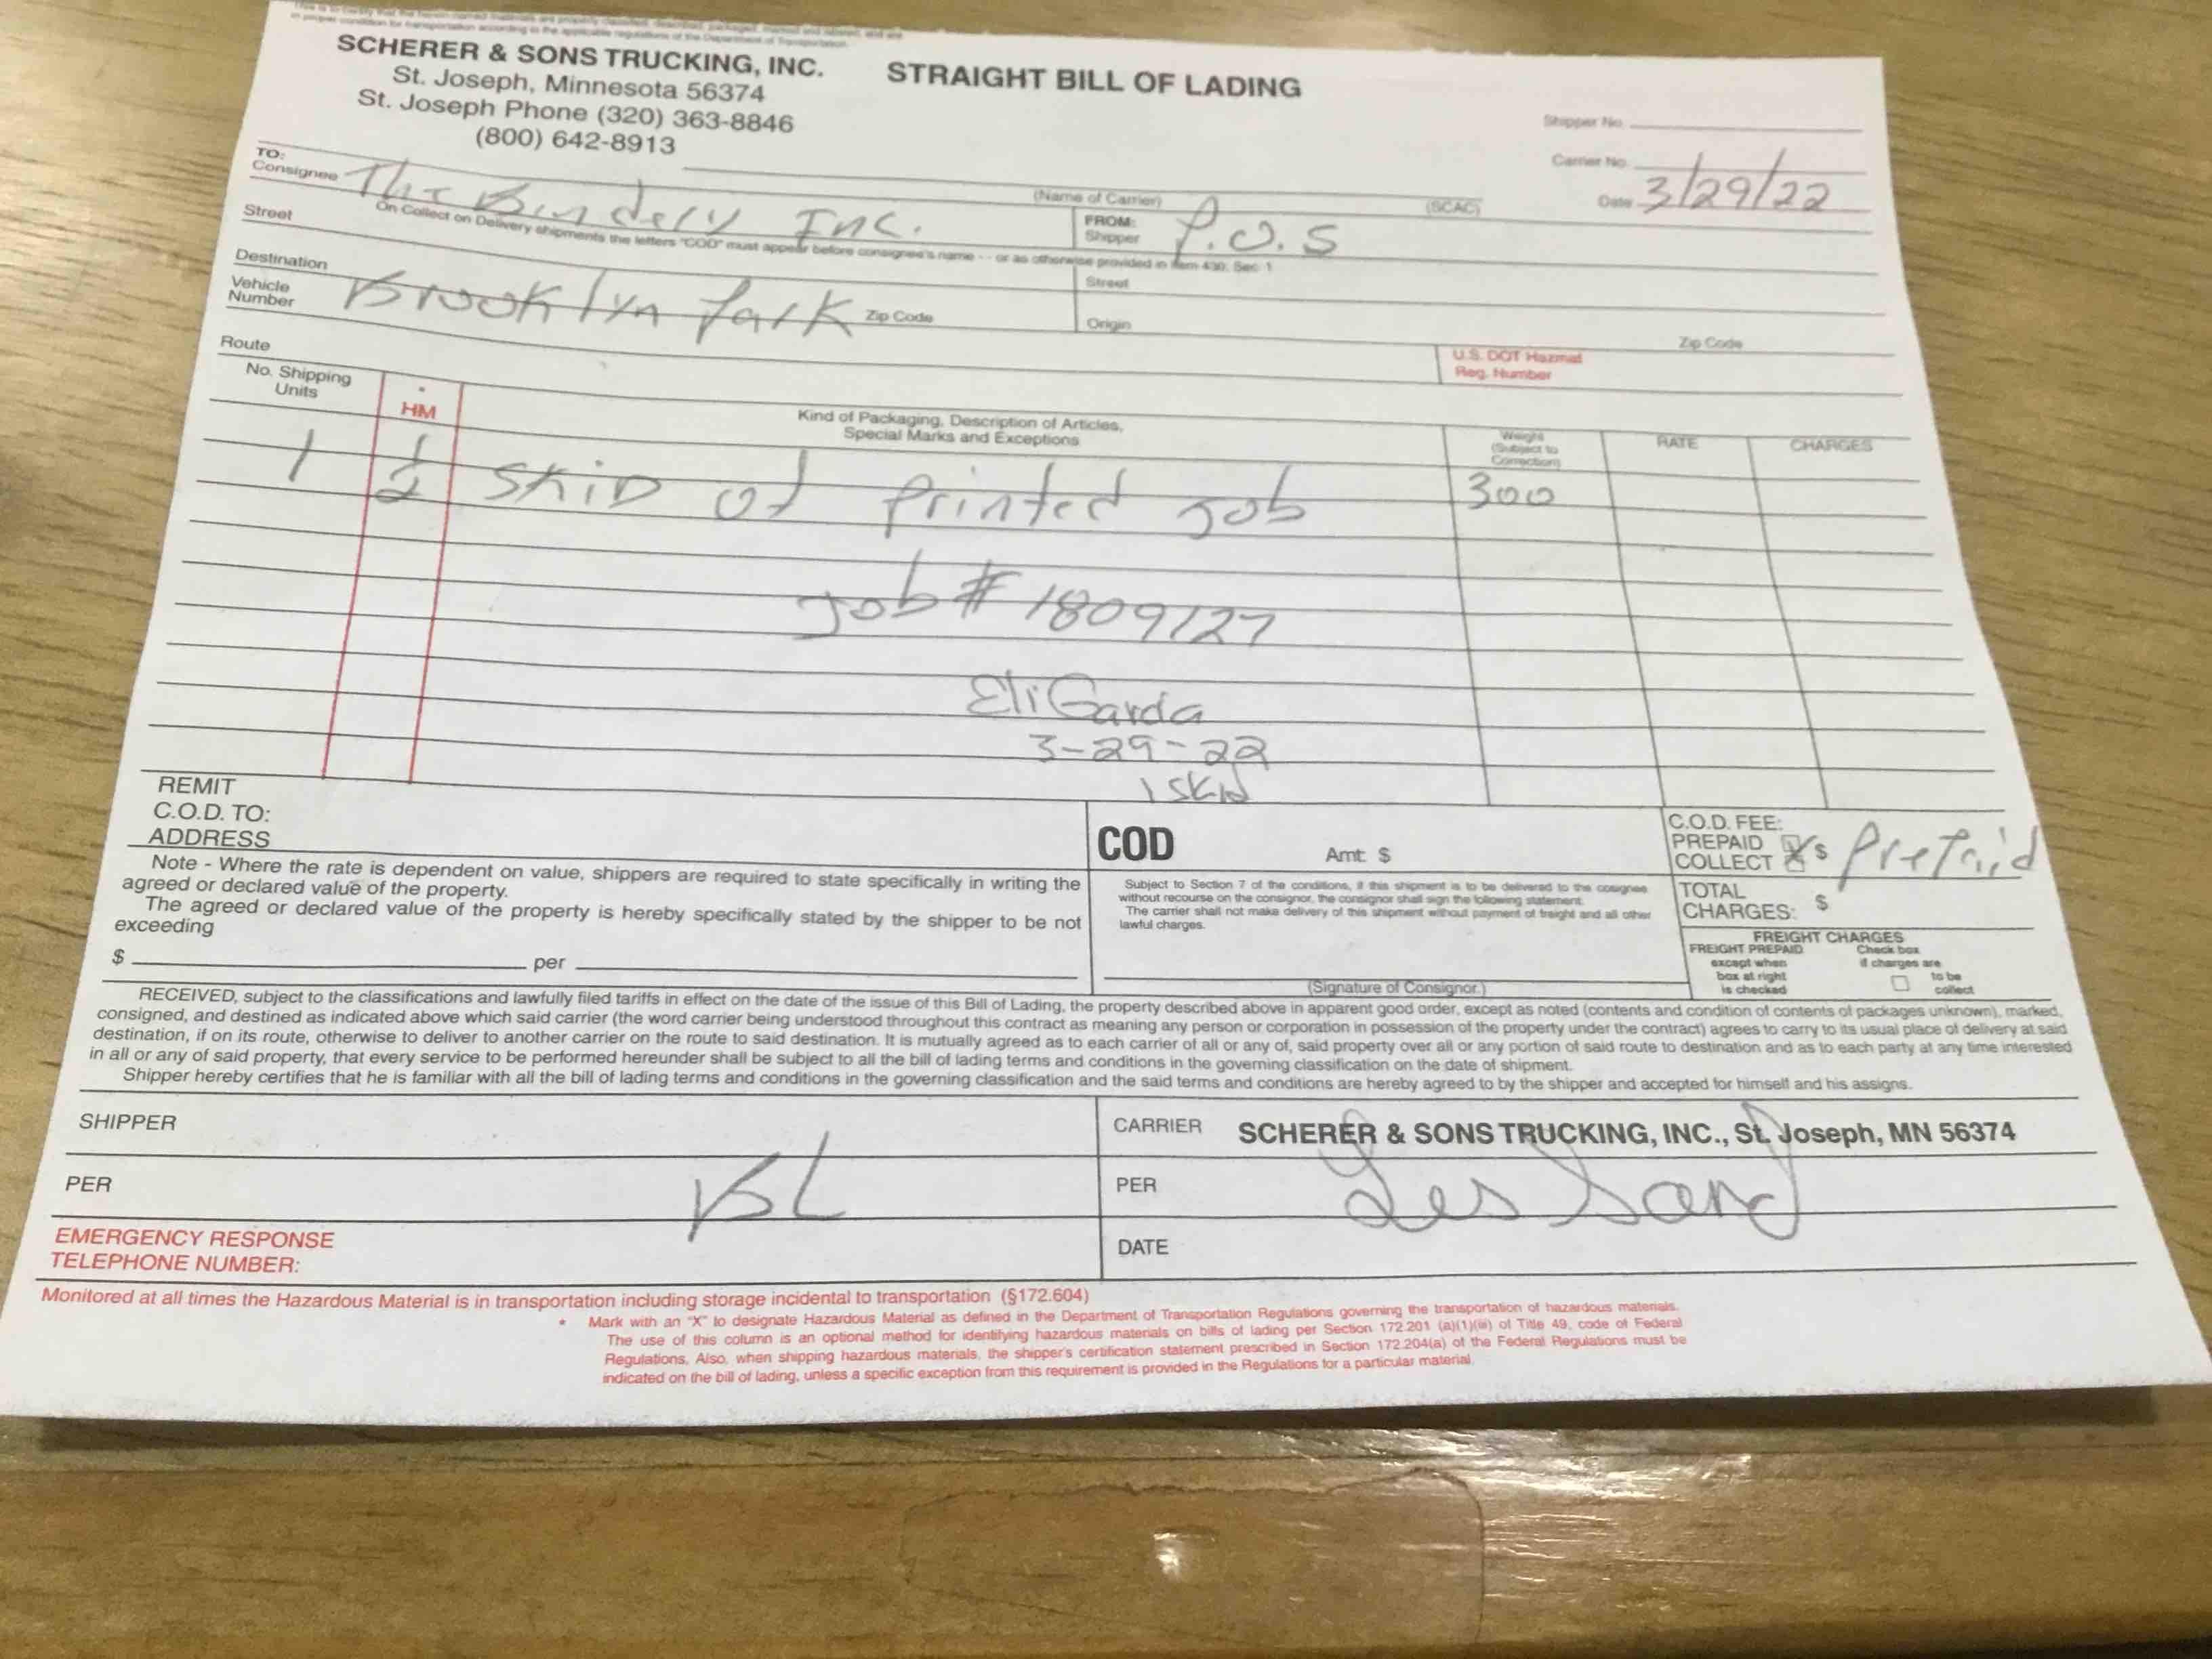 This is to certify that the herein named materials are properly classified, described, packaged, marked and labeled, and are
in proper condition for transportation according to the applicable regulations of the Department of Transportation.
SCHERER & SONS TRUCKING, INC.
St. Joseph, Minnesota 56374
St. Joseph Phone (320) 363-8846
(800) 642-8913
STRAIGHT BILL OF LADING
Shipper No.
Carrier No.
Date 3/29/22
(Name of Carrier) (SCAC)
TO:
Consignee The Bindery Inc.
FROM:
Shipper P.O.S
On Collect on Delivery shipments the letters "COD" must appear before consignee's name - - or as otherwise provided in Item 430, Sec. 1
Street
Street
Destination Brooklyn Park Zip Code
Origin Zip Code
Vehicle
Number
U.S. DOT Hazmat
Reg. Number
Route
No. Shipping
Units
*
HM
Kind of Packaging, Description of Articles,
Special Marks and Exceptions
Weight
(Subject to
Correction)
RATE
CHARGES
1 1/2 SkiD of Printed Job 300
Job # 1809127
Eli Garda
3-29-22
1 Skid
REMIT
C.O.D. TO:
ADDRESS
COD Amt: $
C.O.D. FEE:
PREPAID
COLLECT $ Prepaid
Note - Where the rate is dependent on value, shippers are required to state specifically in writing the
agreed or declared value of the property.
The agreed or declared value of the property is hereby specifically stated by the shipper to be not
exceeding
$ per
Subject to Section 7 of the conditions, if this shipment is to be delivered to the cosignee
without recourse on the consignor, the consignor shall sign the following statement.
The carrier shall not make delivery of this shipment without payment of freight and all other
lawful charges.
(Signature of Consignor.)
TOTAL
CHARGES: $
FREIGHT CHARGES
FREIGHT PREPAID
except when
box at right
is checked
Check box
if charges are
to be
collect
RECEIVED, subject to the classifications and lawfully filed tariffs in effect on the date of the issue of this Bill of Lading, the property described above in apparent good order, except as noted (contents and condition of contents of packages unknown), marked,
consigned, and destined as indicated above which said carrier (the word carrier being understood throughout this contract as meaning any person or corporation in possession of the property under the contract) agrees to carry to its usual place of delivery at said
destination, if on its route, otherwise to deliver to another carrier on the route to said destination. It is mutually agreed as to each carrier of all or any of, said property over all or any portion of said route to destination and as to each party at any time interested
in all or any of said property, that every service to be performed hereunder shall be subject to all the bill of lading terms and conditions in the governing classification on the date of shipment.
Shipper hereby certifies that he is familiar with all the bill of lading terms and conditions in the governing classification and the said terms and conditions are hereby agreed to by the shipper and accepted for himself and his assigns.
SHIPPER
PER BL
EMERGENCY RESPONSE
TELEPHONE NUMBER:
CARRIER SCHERER & SONS TRUCKING, INC., St. Joseph, MN 56374
PER Les Sand
DATE
Monitored at all times the Hazardous Material is in transportation including storage incidental to transportation (§172.604)
* Mark with an "X" to designate Hazardous Material as defined in the Department of Transportation Regulations governing the transportation of hazardous materials.
The use of this column is an optional method for identifying hazardous materials on bills of lading per Section 172.201 (a)(1)(iii) of Title 49, code of Federal
Regulations, Also, when shipping hazardous materials, the shipper's certification statement prescribed in Section 172.204(a) of the Federal Regulations must be
indicated on the bill of lading, unless a specific exception from this requirement is provided in the Regulations for a particular material.